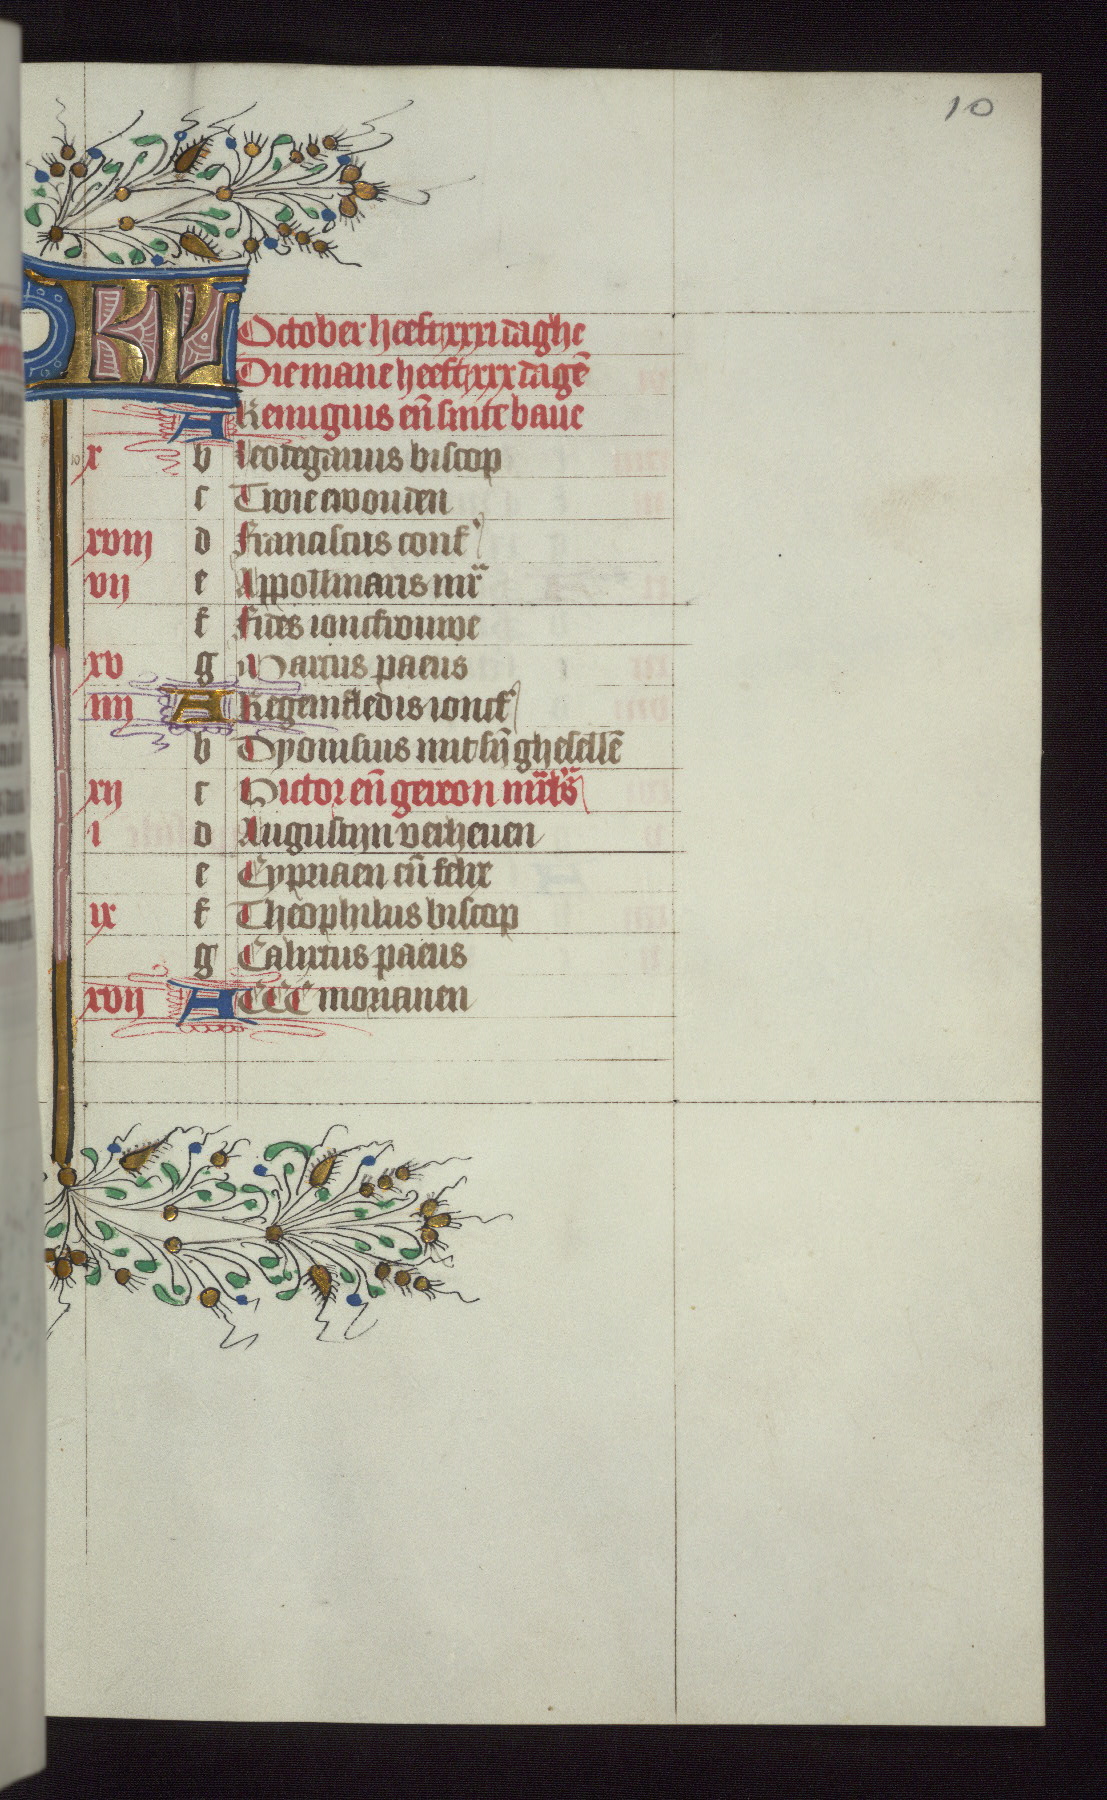 10
KL October heeft xxxi daghe
Die mane heeft xxx dagē
A Remigius eñ sinte baue
x b Leodegarius biscop
c Twie ewouden
xviii d Franciscus conf
vii e Appollinaris mr
f Fides ioncfrouwe
xv g Marcus paeus
iiii A Regenfledis ioncf
b Dyonisius mit sỹ ghesellē
xii c Victor eñ gereon mrs
i d Augustijn verheuen
e Cypriaen eñ felix
ix f Theophilus biscop
g Calixtus paeus
xvii A CCC morianen